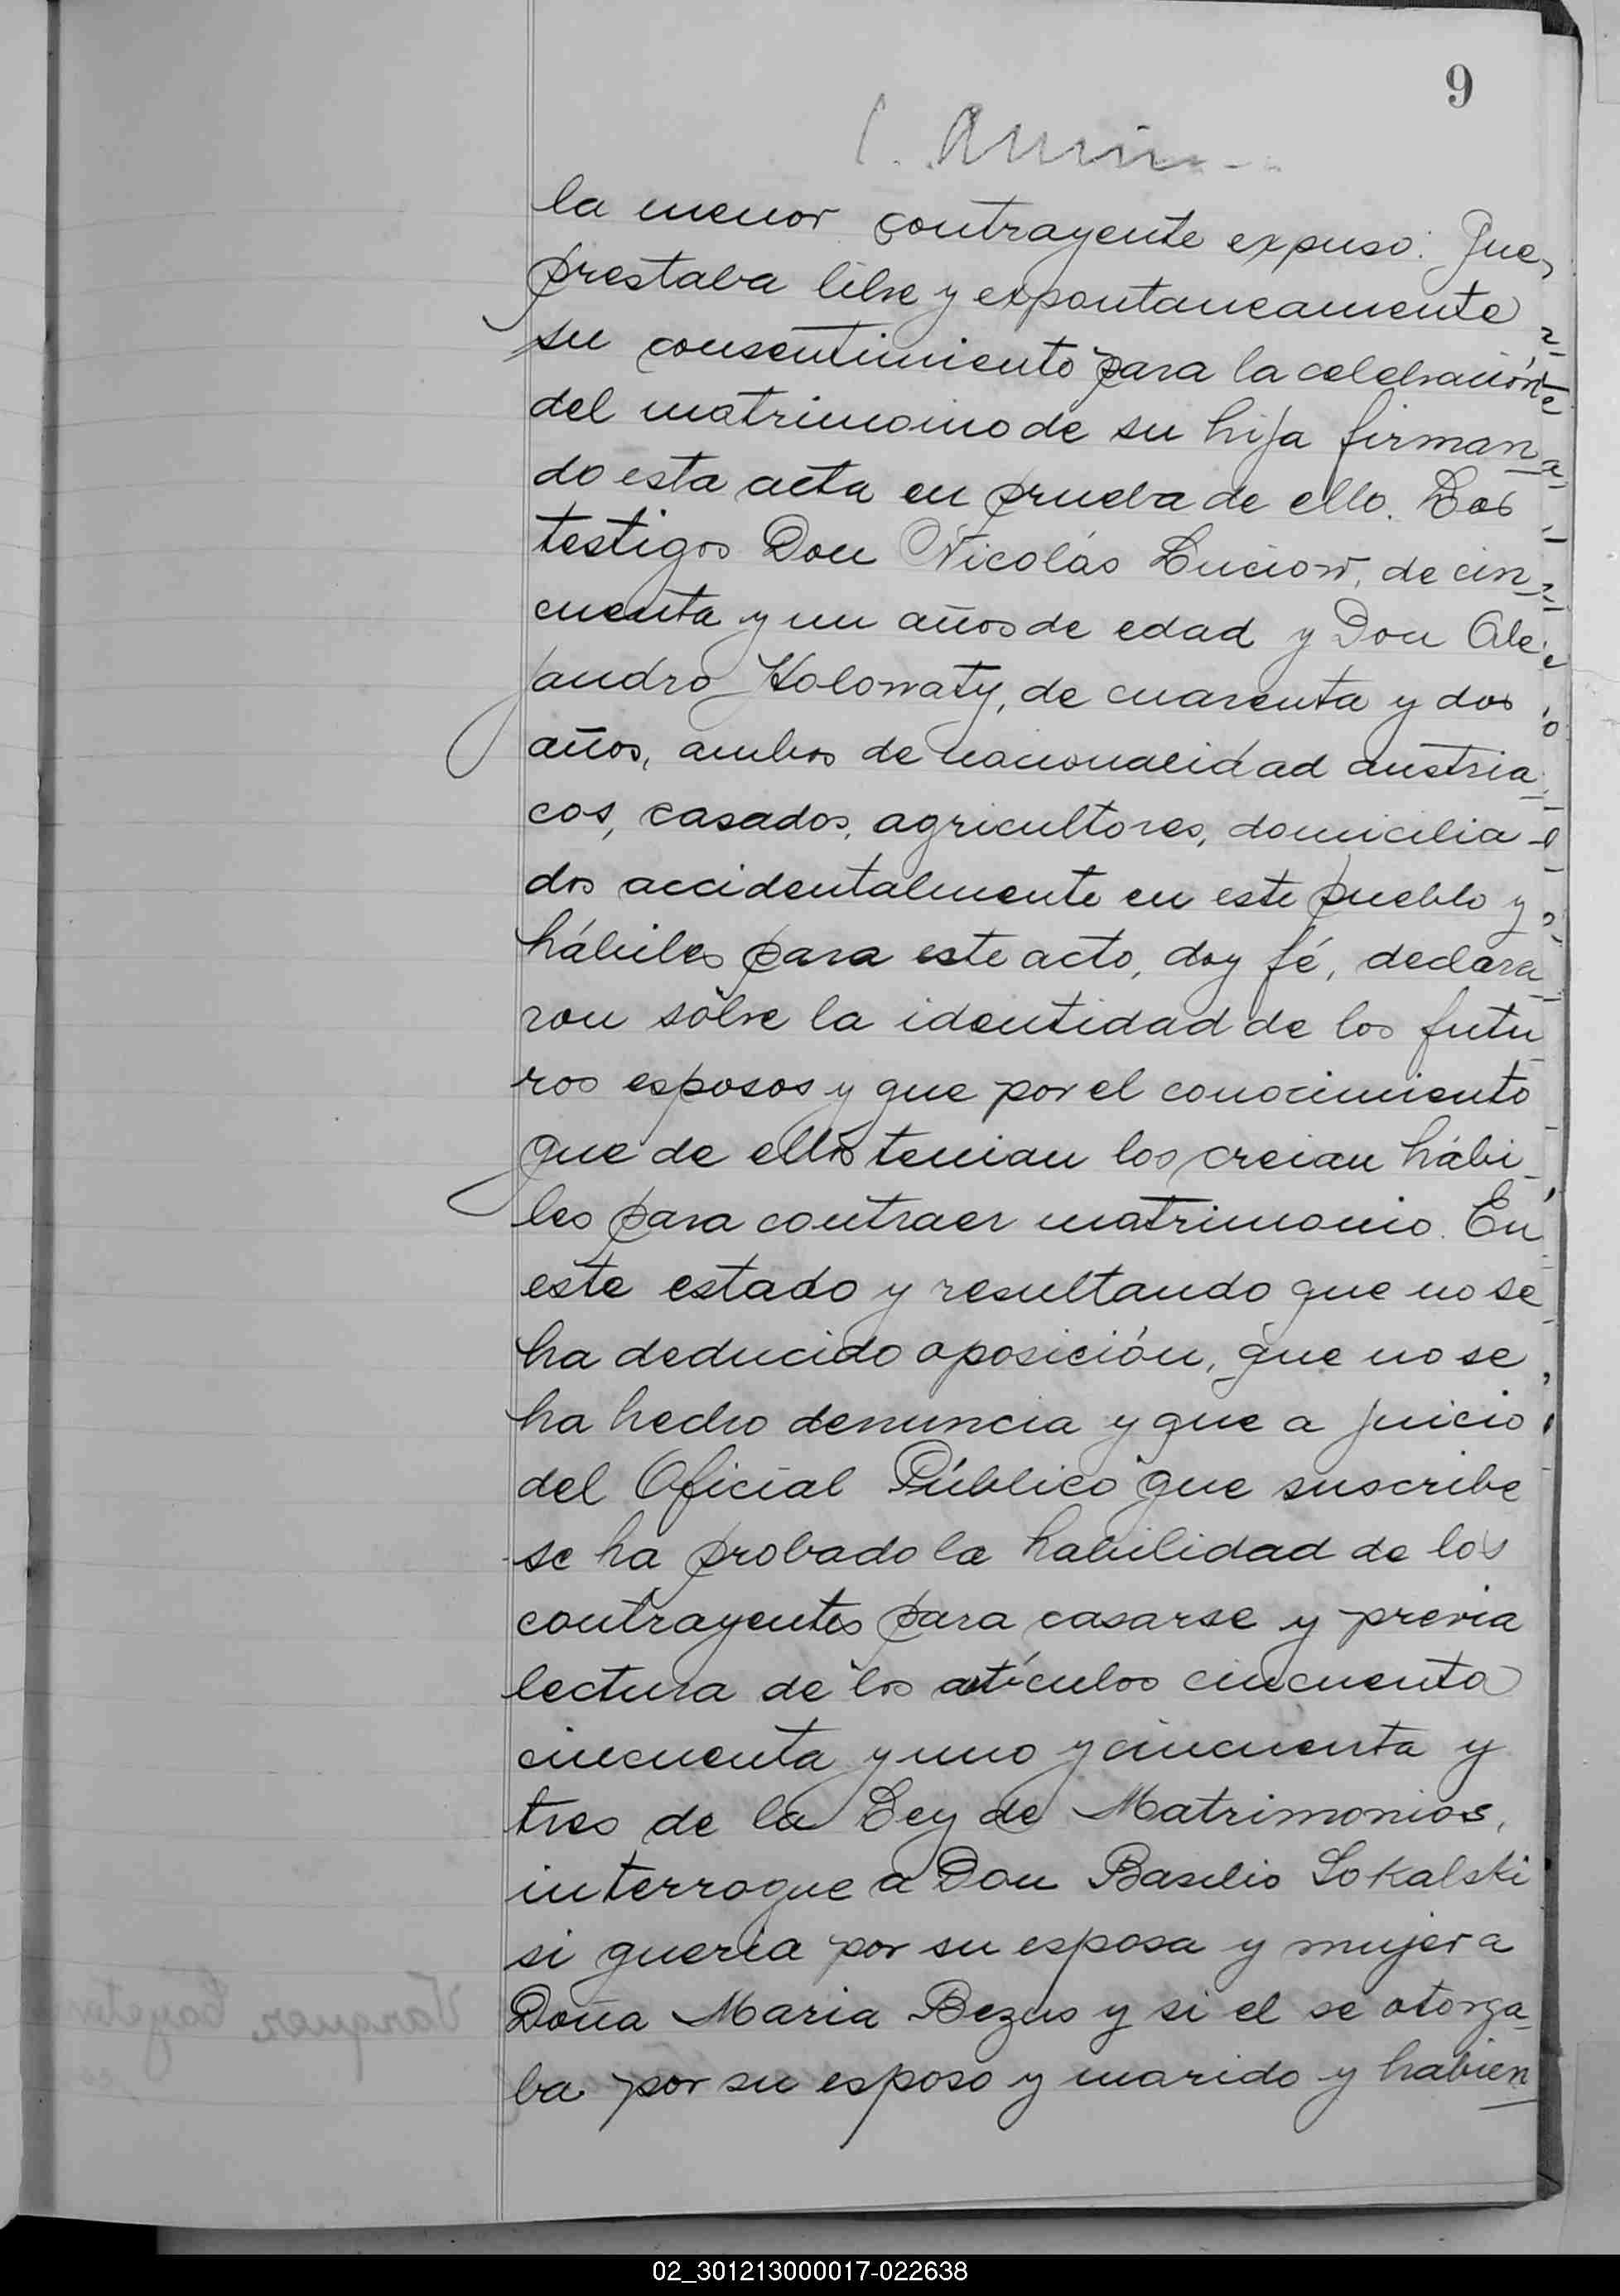 9
la menor contrayente expuso: Que
prestaba libre y expontaneamente
su consentimiento para la celebración
del matrimonio de su hija firman
do esta acta en prueba de ello. Los
testigos Don Nicolás Luciow, de cin
cuenta y un años de edad y Don Ale
jandro Holowaty, de cuarenta y dos
años, ambos de nacionalidad austria
cos, casados, agricultores, domicilia
dos accidentalmente en este pueblo y
hábiles para este acto, doy fé, declara
ron sobre la identidad de los futu
ros esposos y que por el conocimiento
que de ellos tenian los creian hábi
les para contraer matrimonio. En
este estado y resultando que no se
ha deducido oposición, que no se
ha hecho denuncia y que a juicio
del Oficial Público que suscribe
se ha probado la habilidad de los
contrayentes para casarse y previa
lectura de los artículos cincuenta
cincuenta y uno y cincuenta y
tres de la Ley de Matrimonios,
interrogue a Don Basilio Sokalski
si queria por su esposa y mujer a
Doña Maria Bezus y si el se otorga
ba por su esposo y marido y habien
02_301213000017-022638